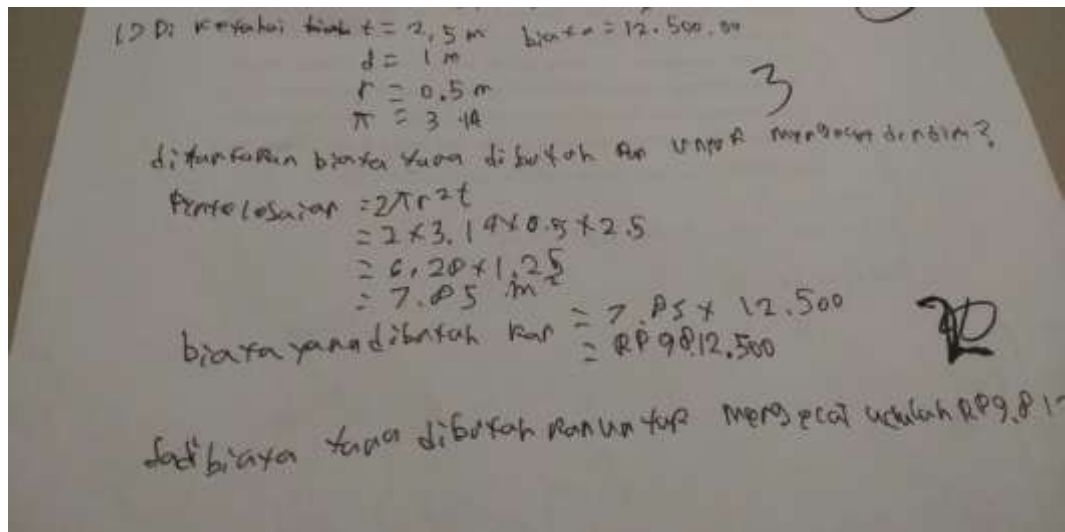 1) Di ketahui t = 2,5 m biaya = 12.500,00
d = 1 m
r = 0.5 m
π = 3 14
3
ditanyakan biaya yang di butuh kan untuk mengecat dinding?
Penyelesaian = 2πr²t
= 2 × 3.14 × 0.5 × 2.5
= 6,28 × 1.25
= 7.85 m²
biaya yang dibutuh kan = 7.85 × 12.500
= RP 98.12.500
Jadi biaya yang dibutuh kan un tuk mengecat adalah RP9.81